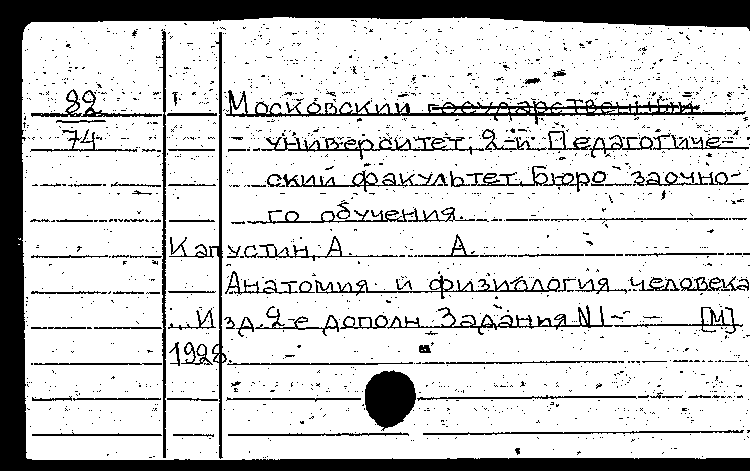 82
74
Московский государственный
университет, 2-й Педагогиче-
ский факультет. Бюро заочно-
го обучения.
Капустин, А. А.
Анатомия и физиология человека
...Изд. 2-е дополн. Задания N 1- - [М]
1928.